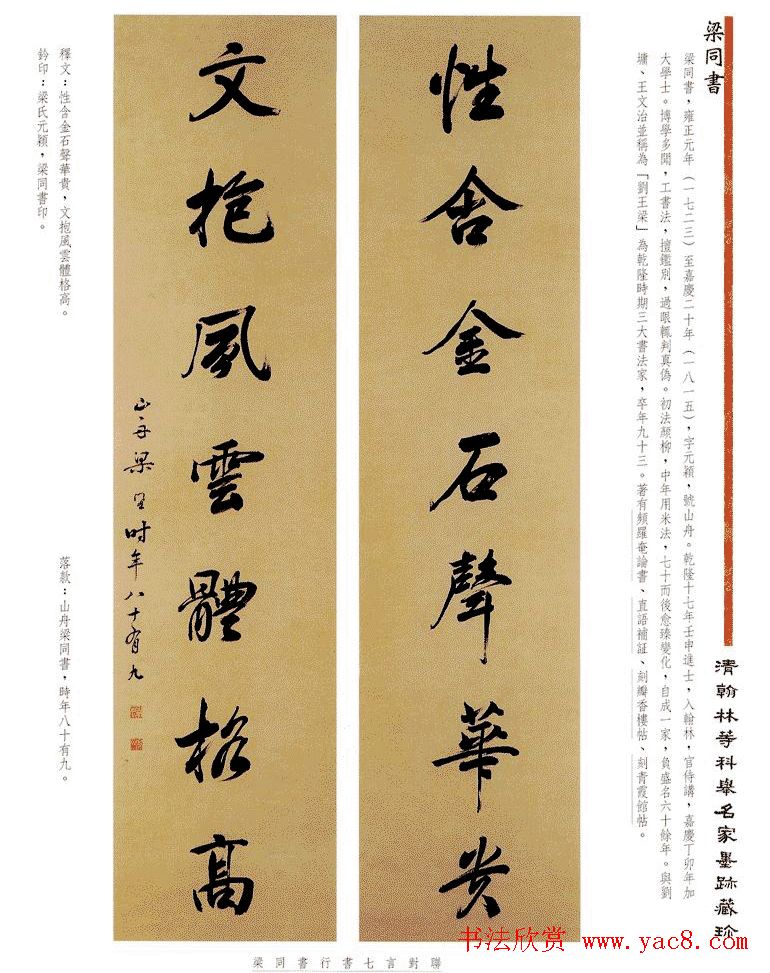 梁同書
梁同書，雍正元年（一七二三）至嘉慶二十年（一八一五），字元穎，號山舟。乾隆十七年壬申進士，入翰林，官侍講，嘉慶丁卯年加
大學士。博學多聞，工書法，擅鑑別，過眼輒判真偽。初法顏柳，中年用米法，七十而後愈臻變化，自成一家，負盛名六十餘年。與劉
墉、王文治並稱為「劉王梁」為乾隆時期三大書法家，卒年九十三。著有頻羅奄論書、直語補証、刻瓣香樓帖、刻青霞館帖。
清翰林等科舉名家墨跡藏珍
性含金石聲華貴
文抱風雲體格高
山舟梁同書時年八十有九
釋文：性含金石聲華貴，文抱風雲體格高。
鈐印：梁氏元穎，梁同書印。
落款：山舟梁同書，時年八十有九。
梁同書行書七言對聯
书法欣赏 www.yac8.com